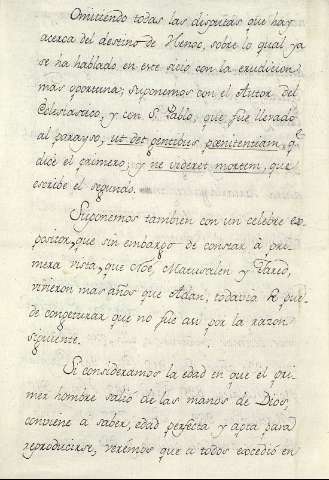 Omitiendo todas las disputas que hay
acerca del destino de Henoc, sobre lo qual ya
se ha hablado en este sitio con la erudicion
mas oportuna; suponemos con el Autor del
Eclesiastico, y con S. Pablo, que fue llevado
al parayso, ut det gentibus pœnitentiam, q.e
dice el primero, y ne videret mortem, que
escribe el segundo.
Suponemos tambien con un celebre ex-
positor, que sin embargo de constar à pri-
mera vista, que Noé, Matusalen y Jared,
vivieron mas años que Adan, todavia se pue-
de congeturar que no fue asi por la razon
siguiente.
Si consideramos la edad en que el pri-
mer hombre salió de las manos de Dios,
conviene a saber, edad perfecta y apta para
reproducirse, verémos que a todos excedió en